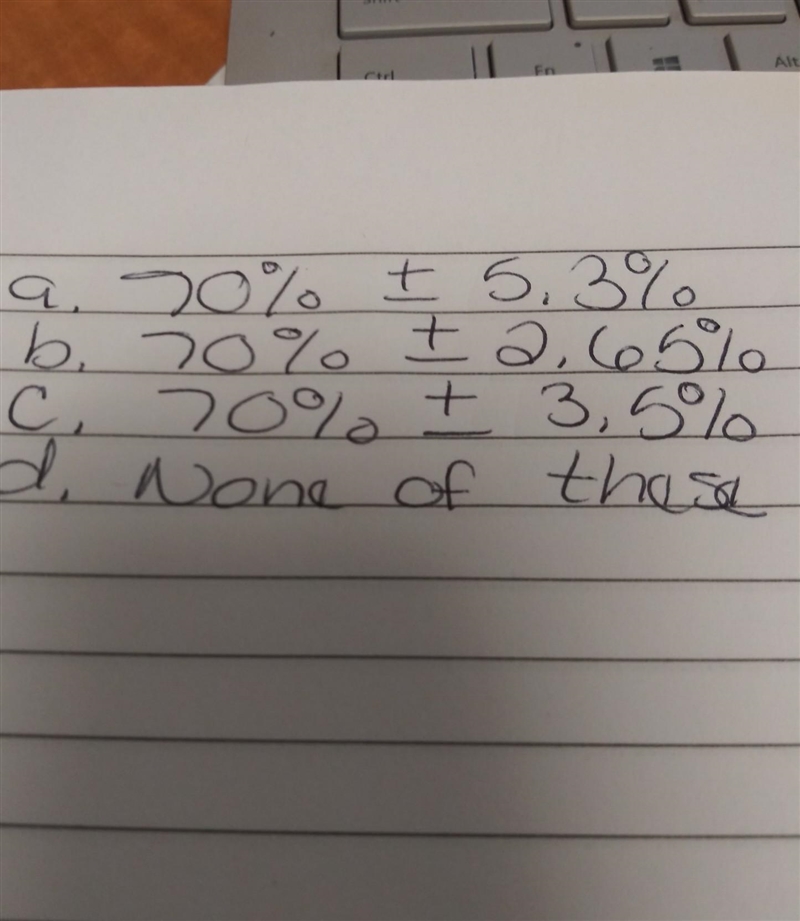 Shift
Ctrl Fn Alt
a. 70% ± 5.3%
b. 70% ± 2.65%
c. 70% ± 3.5%
d. None of these